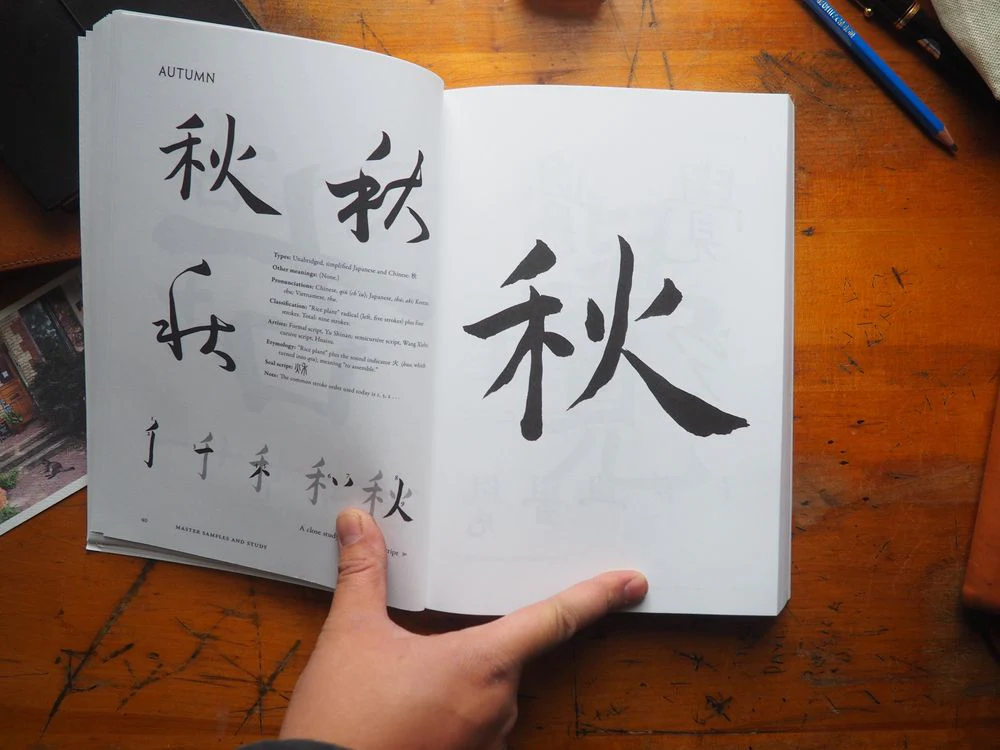 AUTUMN
秋 秋
秋
Types: Unabridged, simplified Japanese and Chinese: 秋
Other meanings: (None.)
Pronunciations: Chinese, qiū (ch'iu); Japanese, shū, aki; Korean,
chu; Vietnamese, thu.
Classification: "Rice plant" radical (left, five strokes) plus four
strokes. Total: nine strokes.
Artists: Formal script, Yu Shinan; semicursive script, Wang Xizhi;
cursive script, Huaisu.
Etymology: "Rice plant" plus the sound indicator 火 (huo, which
turned into qiu), meaning "to assemble."
Seal script:
Note: The common stroke order used today is 1, 3, 2 . . .
千 禾 秋
40 MASTER SAMPLES AND STUDY
A close stud
script
秋